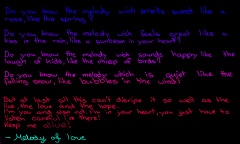 Do you know the melody which smells sweet like a
rose, like the spring?
Do you know the melody which feels great like a
kiss in the rain, like a sunbeam in your heart?
Do you know the melody which sounds happy like the
laugh of kids, like the chirps of birds?
Do you know the melody which is quiet like the
falling snow, like the in the wind?
But at last all this can't discribe it so well as the
live, the love and the hope.
I'm you and use not I'm in your heart, you just have to
listen careful I'm there!
Keep me alive!
- Melody of love